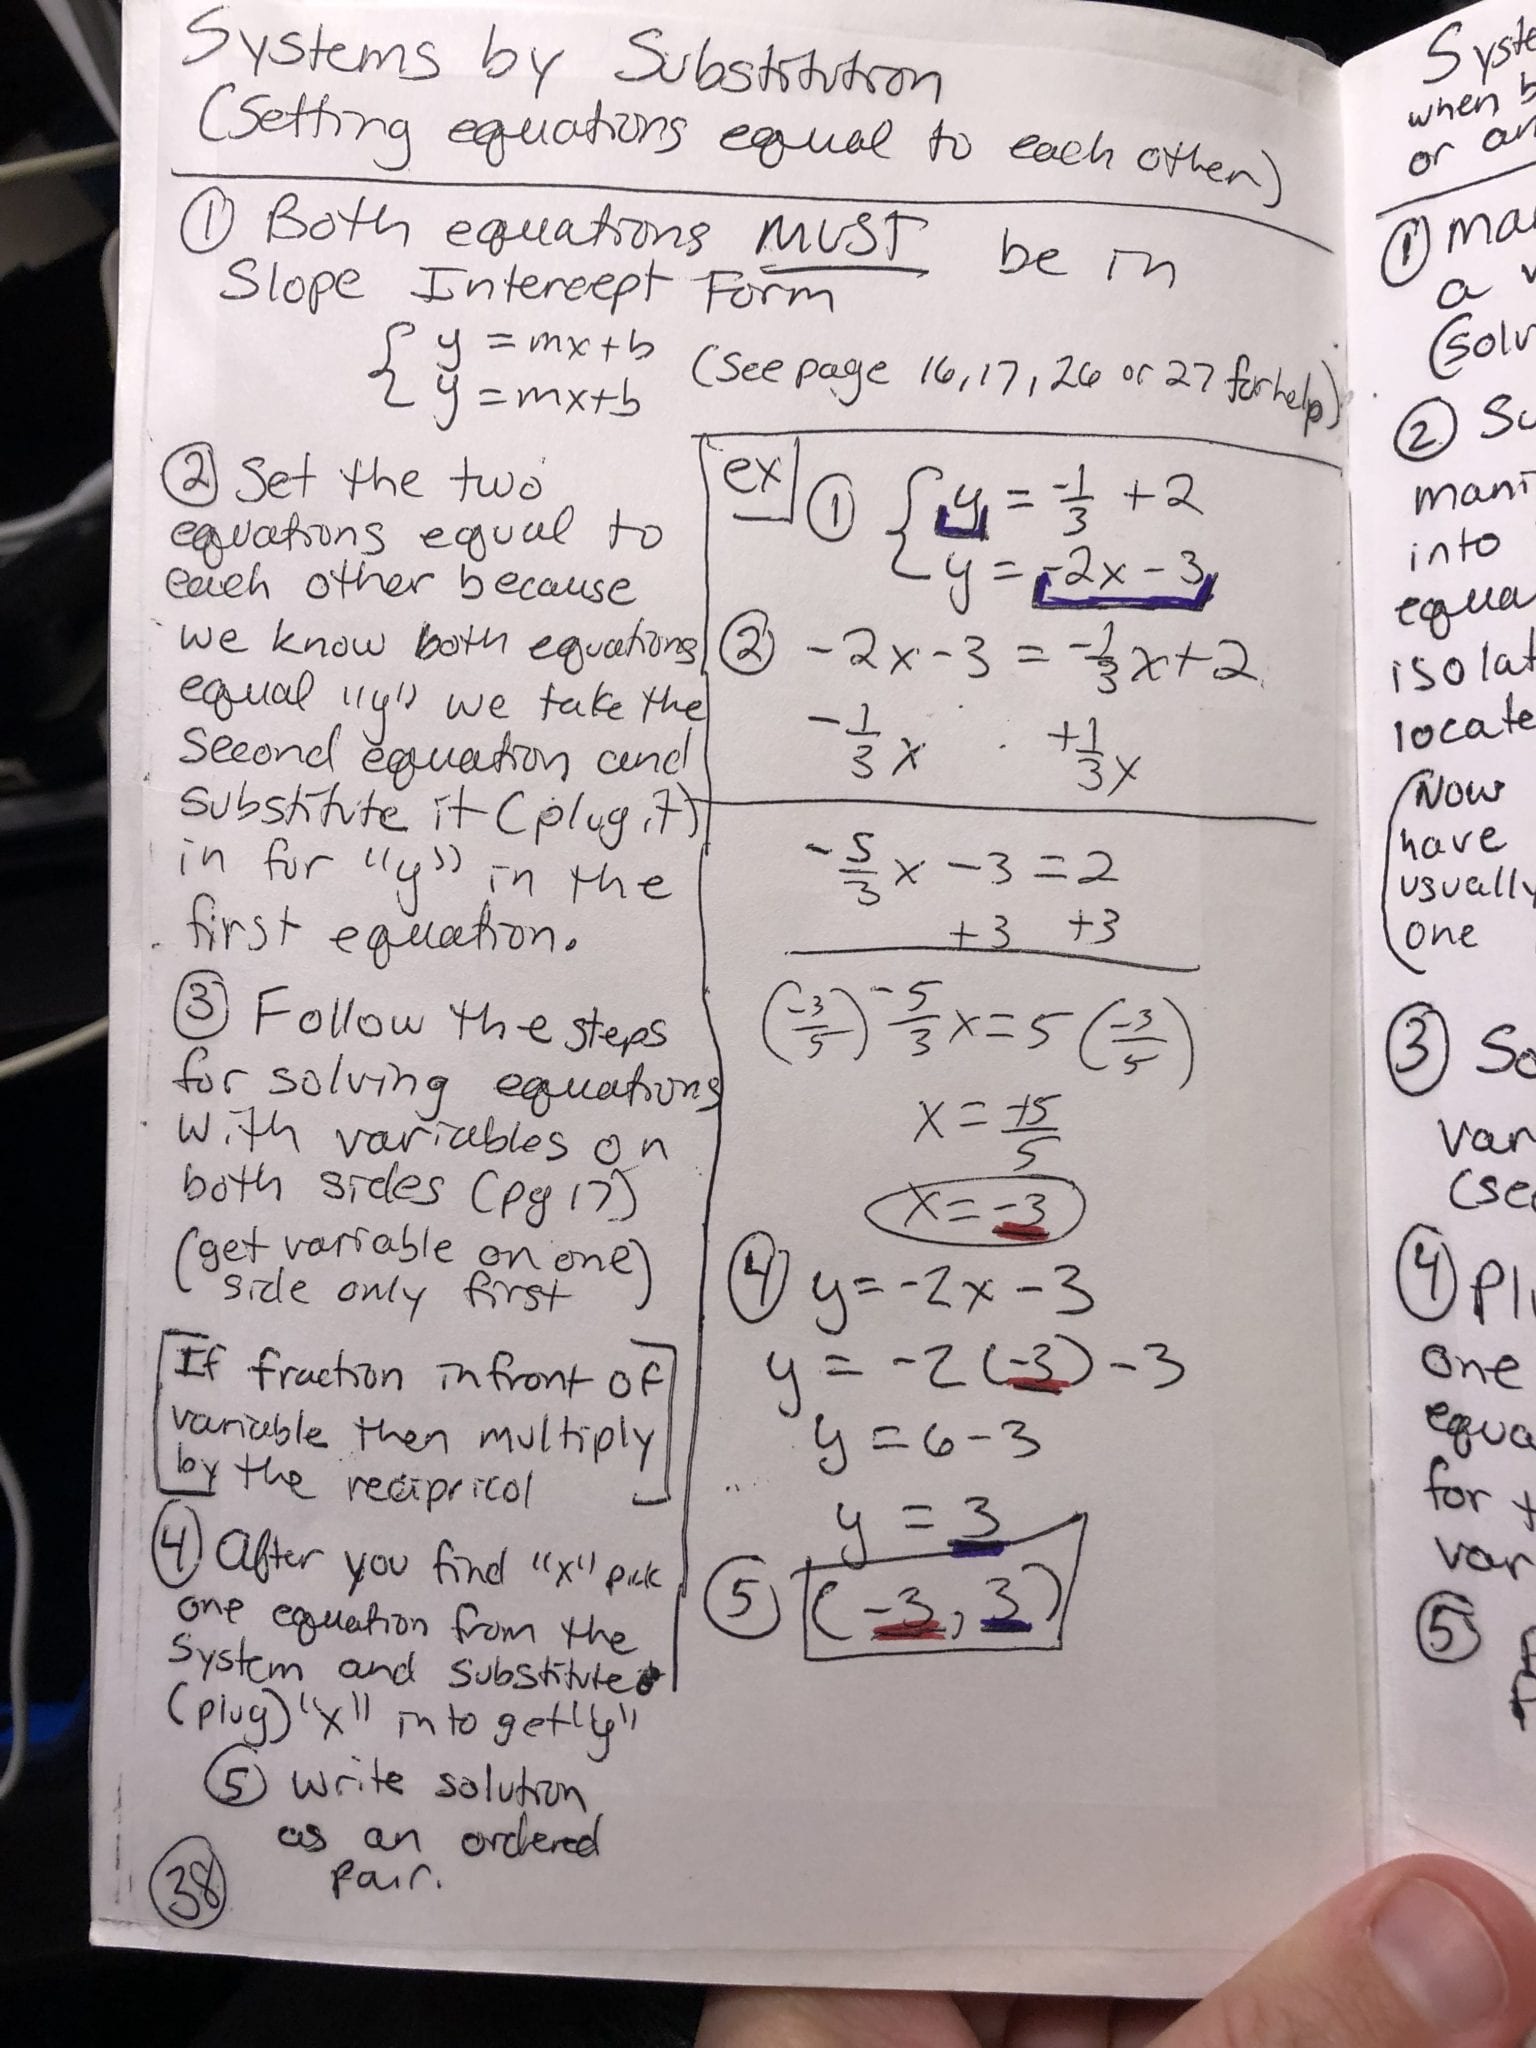 Systems by Substitution
(Setting equations equal to each other)
① Both equations MUST be in
Slope Intercept Form
{ y = mx+b
y = mx+b
(See page 16, 17, 26 or 27 for help)
② Set the two
equations equal to
each other because
we know both equations
equal "y" we take the
second equation and
substitute it (plug it)
in for "y" in the
first equation.
③ Follow the steps
for solving equations
with variables on
both sides (pg 17)
(get variable on one)
side only first
[If fraction in front of
variable then multiply
by the recipricol]
④ After you find "x" pick
one equation from the
system and substitute
(plug) "x" in to get "y"
⑤ Write solution
as an ordered
pair.
38
ex
① { y = -1/3 + 2
y = -2x - 3
② -2x - 3 = -1/3 x + 2
-1/3 x +1/3 x
-5/3 x - 3 = 2
+3 +3
(-3/5) -5/3 x = 5 (-3/5)
x = -15/5
x = -3
④ y = -2x - 3
y = -2(-3) - 3
y = 6 - 3
y = 3
⑤ (-3, 3)
Syste
when b
or an
① ma
a
(Solv
② Su
mani
into
equa
isolat
locate
(Now
have
usually
one
③ So
var
(see
④ Plu
one
equa
for t
var
⑤